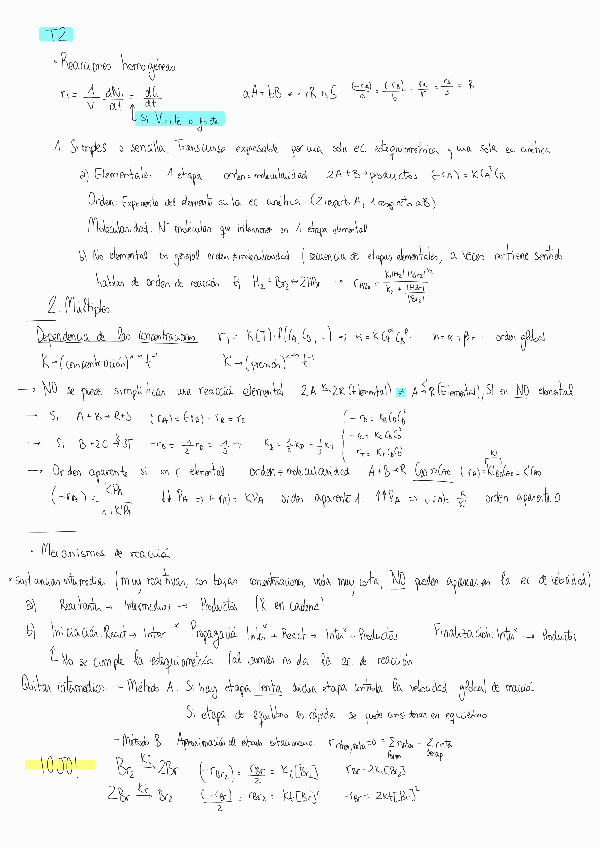 T2
· Reacciones homogéneas
ri = 1/V dNi/dt = dCi/dt    aA + bB → rR + sS    (-rA)/a = (-rB)/b = rR/r = rS/s = R
Si V = cte
1. Simples o sencilla: Transcurso expresable por una sola ec. estequiométrica y una sola ec cinética
a) Elementales: 1 etapa orden = molecularidad 2A + B → productos (-rA) = K CA² CB
Orden: Exponente del elemento en la ec cinética (2 respecto A, 1 respecto a B)
Molecularidad: Nº moléculas que intervienen en 1 etapa elemental
b) No elemental: en general orden ≠ molecularidad (secuencia de etapas elementales, a veces no tiene sentido
hablar de orden de reacción. Ej H2 + Br2 → 2HBr → rHBr = K1[H2][Br2]^1/2 / K2 + [HBr]/[Br2]
2. Múltiples
Dependencia de las concentraciones ri = K(T)·f(CA, CB, ..) → ri = K CA^α CB^β n = α + β + ... orden global
K → (concentración)^1-n t^-1    K → (presión)^1-n t^-1
→ NO se puede simplificar una reacción elemental 2A → 2R (Elemental) ≠ A → R (Elemental), SI en NO elemental
→ Si A + B → R + S (-rA) = (-rB) = rR = rS
→ Si B + 2C → 3T -rB = -1/2 rC = 1/3 rT → KB = 1/2 KC = 1/3 KT
-rB = KB CB CC²
-rC = KC CB CC²
rT = KT CB CC²
→ Orden aparente si en r elemental orden ≠ molecularidad A + B → R CB0 >> CA0 (-rA) = K CB0 CA = K' CA
(-rA) = K PA / 1 + K' PA    ↓↓ PA → (-rA) = K PA orden aparente 1. ↑↑ PA → (-rA) = K/K' orden aparente 0
· Mecanismos de reacción
* Sustancias intermedias (muy reactivas, con bajas concentraciones, vida muy corta, NO pueden aparecer en la ec de velocidad)
a) Reactantes → Intermedios → Productos (R. en cadena)
b) Iniciación: React → Inter* Propagación Inter* + React → Inter* + Productos Finalización: Inter* → Productos
No se cumple la estequiometría (al sumar no da la ec. de reacción
Quitar intermedios: - Método A: Si hay etapa lenta dicha etapa controla la velocidad global de reacción
Si etapa de equilibrio es rápida se puede considerar en equilibrio
- Método B: Aproximación de estado estacionario. r inter, neta = 0 = Σ rinter form - Σ rinter desap
¡OJO! Br2 →Ki 2Br (-rBr2) = rBr/2 = Ki[Br2] rBr = 2Ki[Br2]
2Br →Kt Br2 (-rBr)/2 = rBr2 = Kt[Br]² -rBr = 2Kt[Br]²